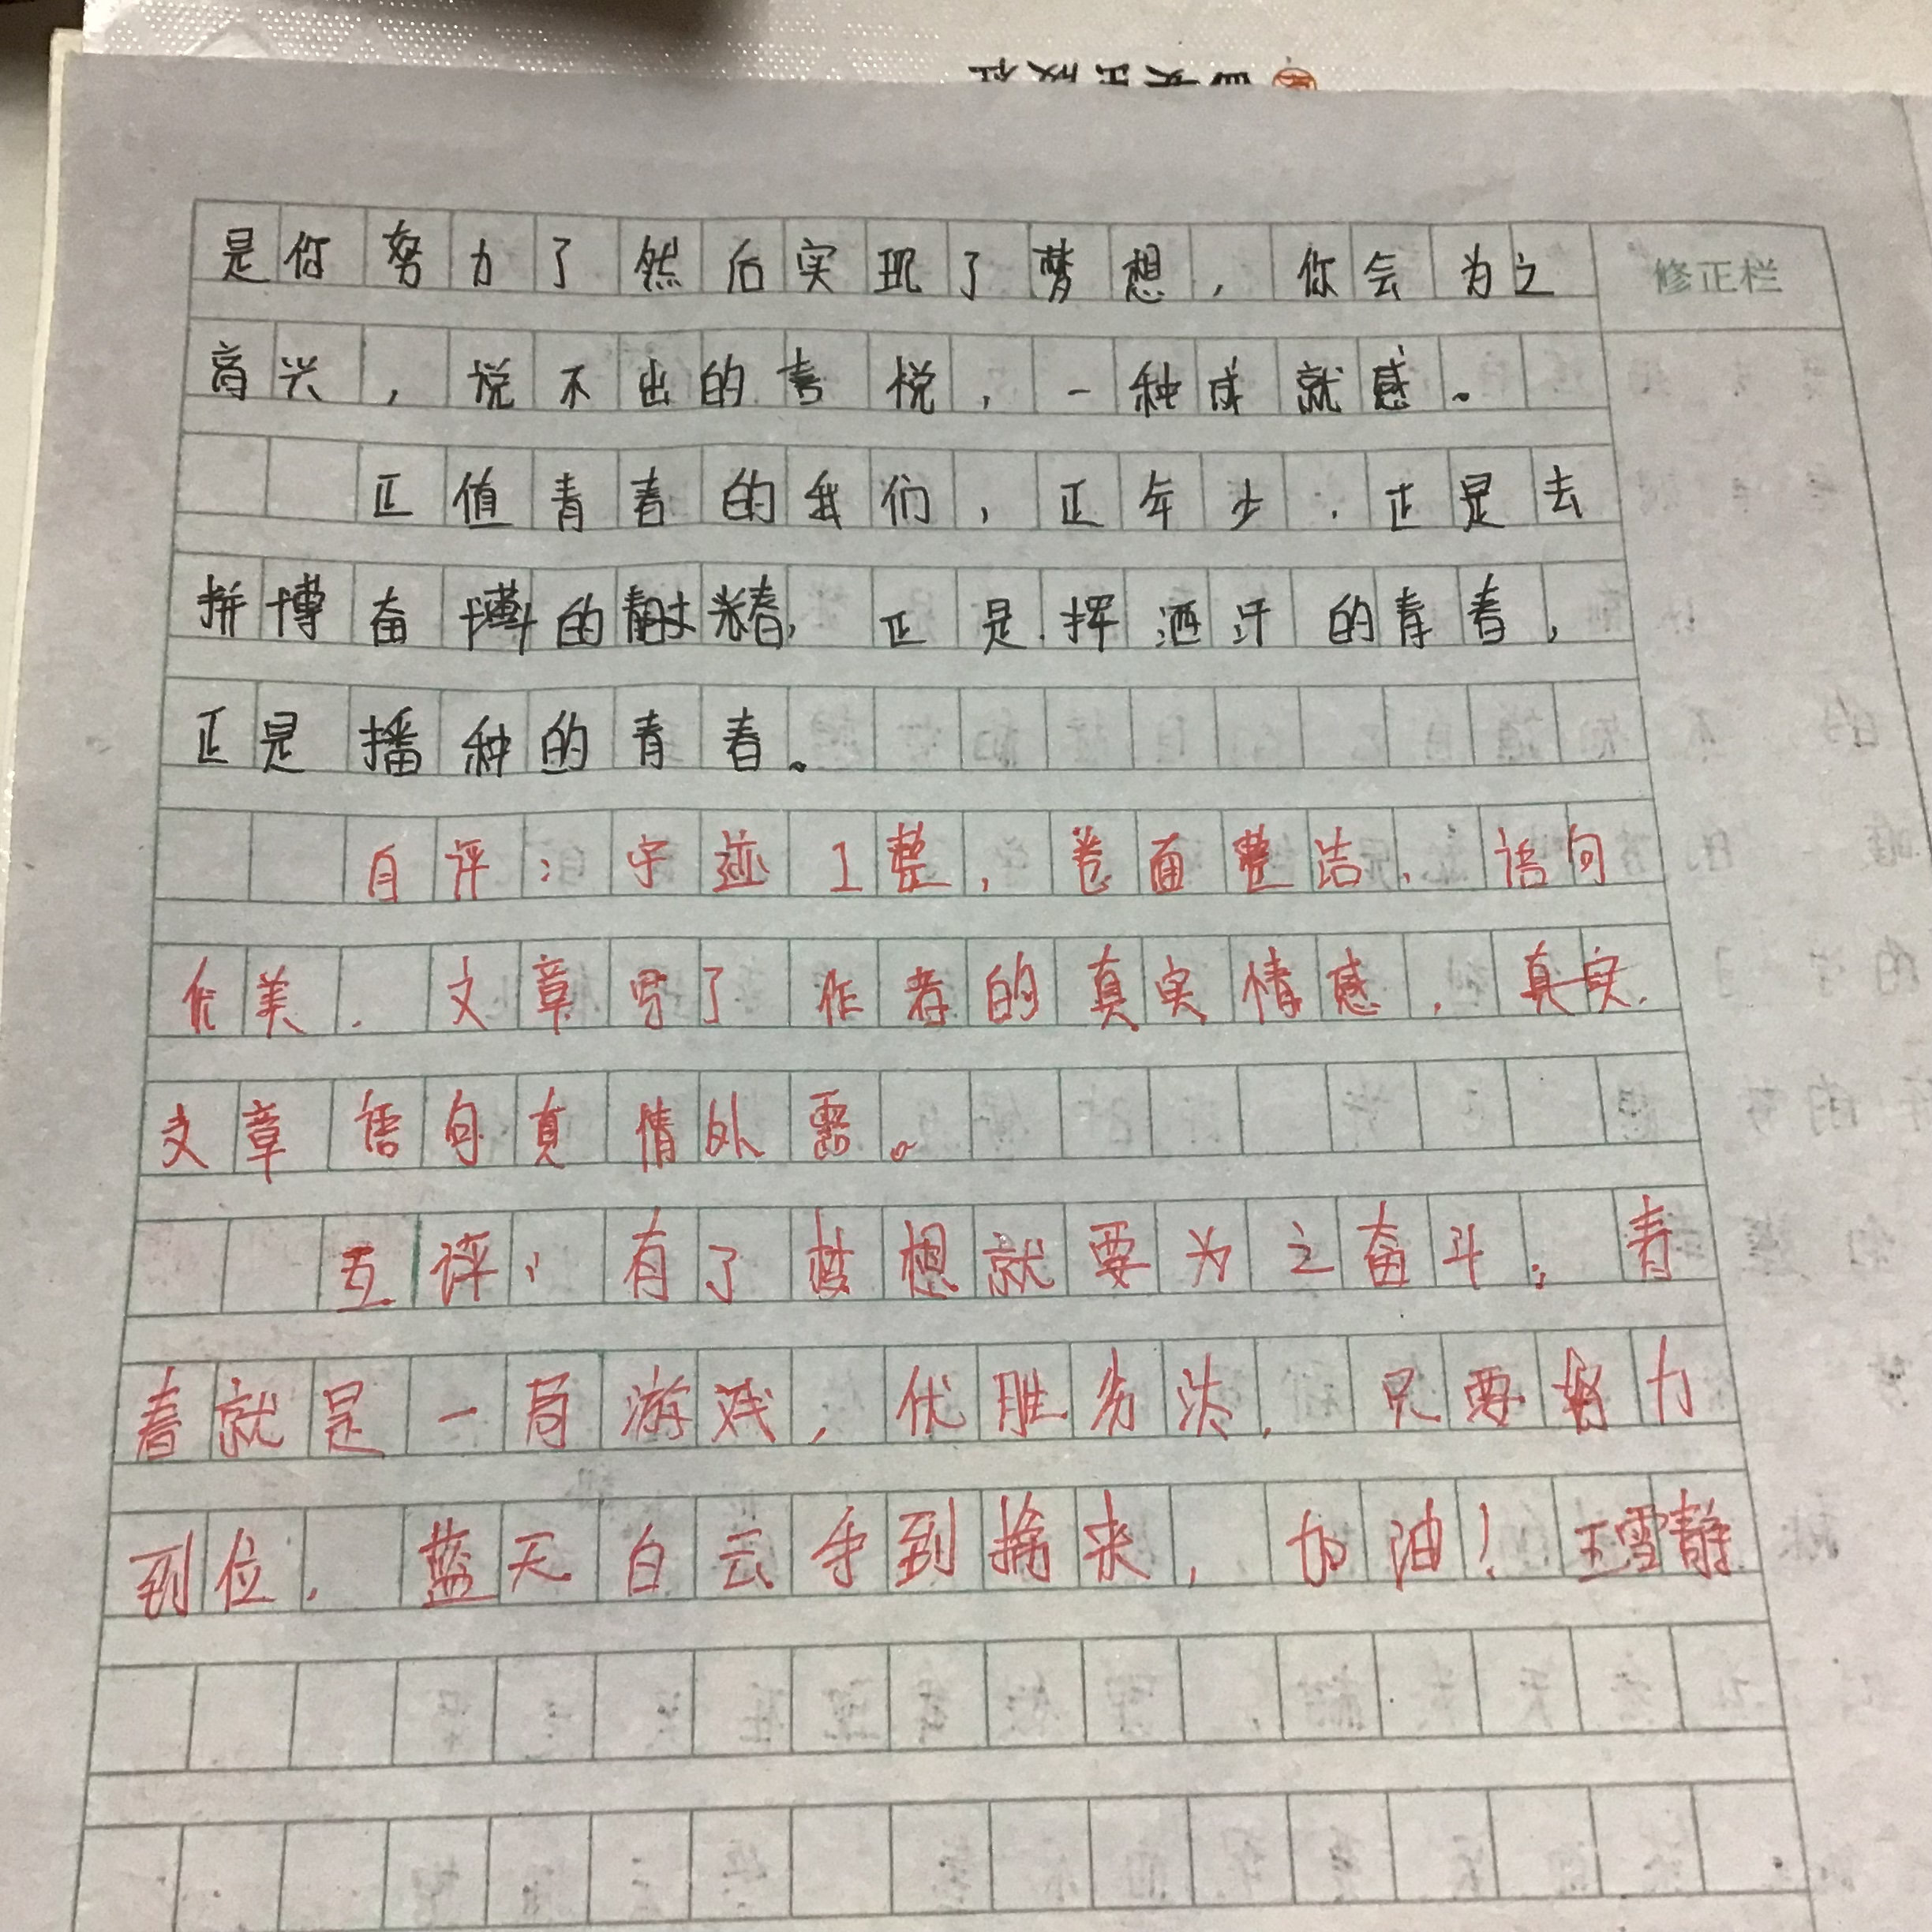 是你努力了然后实现了梦想，你会为之
高兴，说不出的喜悦，一种成就感。
正值青春的我们，正年少，正是去
拼搏奋斗的青春，正是挥洒汗的青春，
正是播种的青春。
自评：字迹工整，卷面整洁，语句
优美，文章写了作者的真实情感，真实，
文章语句真情外露。
互评：有了梦想就要为之奋斗；青
春就是一局游戏，优胜劣汰，只要努力
到位，蓝天白云手到擒来，加油！王雪静
修正栏